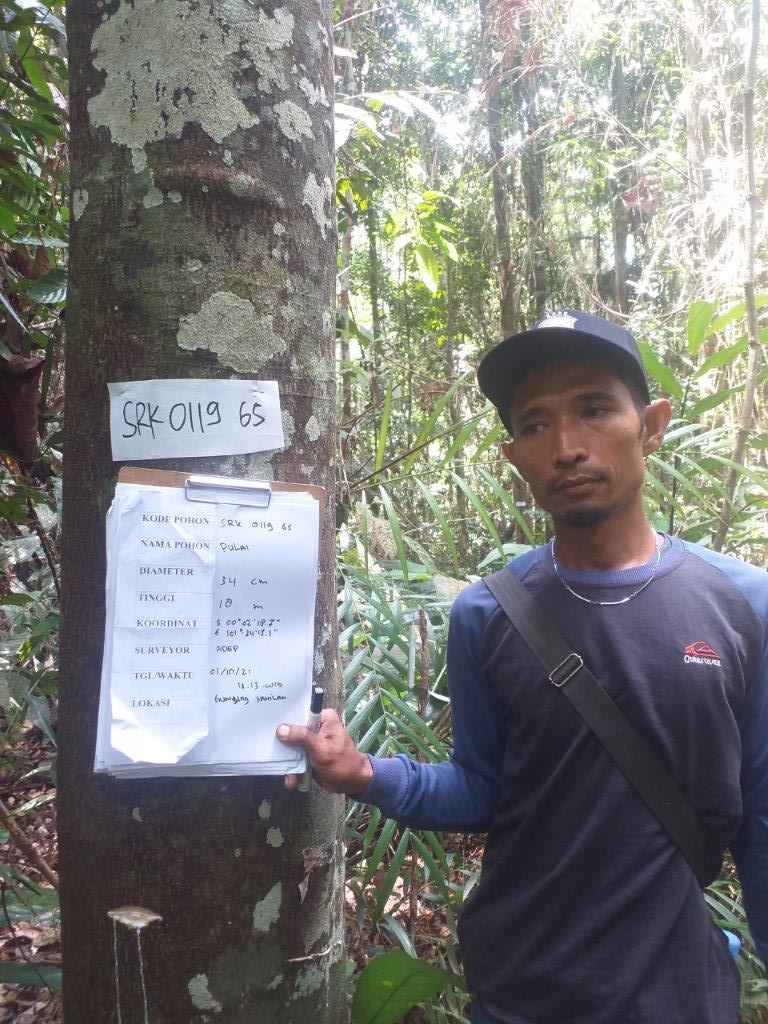 SRK 0119 65
KODE POHON SRK 0119 65
NAMA POHON Pulai
DIAMETER 34 cm
TINGGI 18 m
KOORDINAT S 00°02'18.7"
E 101°24'17.1"
SURVEYOR ADEP
TGL/WAKTU 01/10/21
11.13 WIB
LOKASI Gunung Sahilan
QUIKSILVER